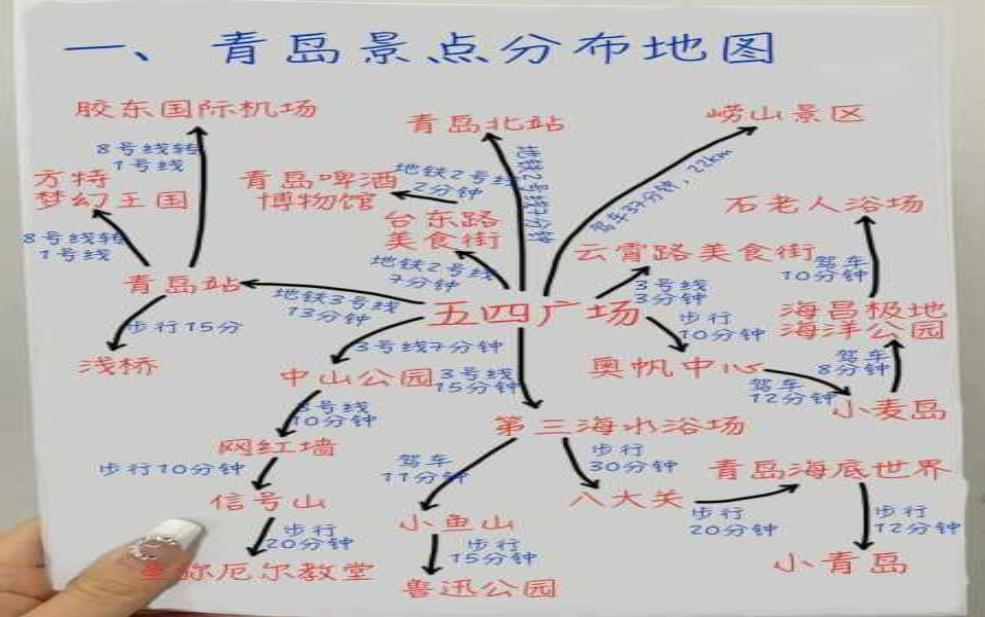 一、青岛景点分布地图
胶东国际机场
青岛北站
崂山景区
8号线转
1号线
地铁2号线7分钟
驾车37分钟，22km
方特
梦幻王国
青岛啤酒
博物馆
地铁2号线
2分钟
台东路
美食街
石老人浴场
8号线转
1号线
地铁2号线
7分钟
云霄路美食街
驾车
10分钟
青岛站
地铁3号线
13分钟
五四广场
3号线
3分钟
步行
10分钟
海昌极地
海洋公园
步行15分
3号线7分钟
浅桥
中山公园
3号线
15分钟
奥帆中心
驾车
12分钟
驾车
8分钟
小麦岛
3号线
10分钟
第三海水浴场
网红墙
步行10分钟
驾车
11分钟
步行
30分钟
青岛海底世界
信号山
小鱼山
八大关
步行
20分钟
步行
12分钟
步行
20分钟
步行
15分钟
弥厄尔教堂
鲁迅公园
小青岛